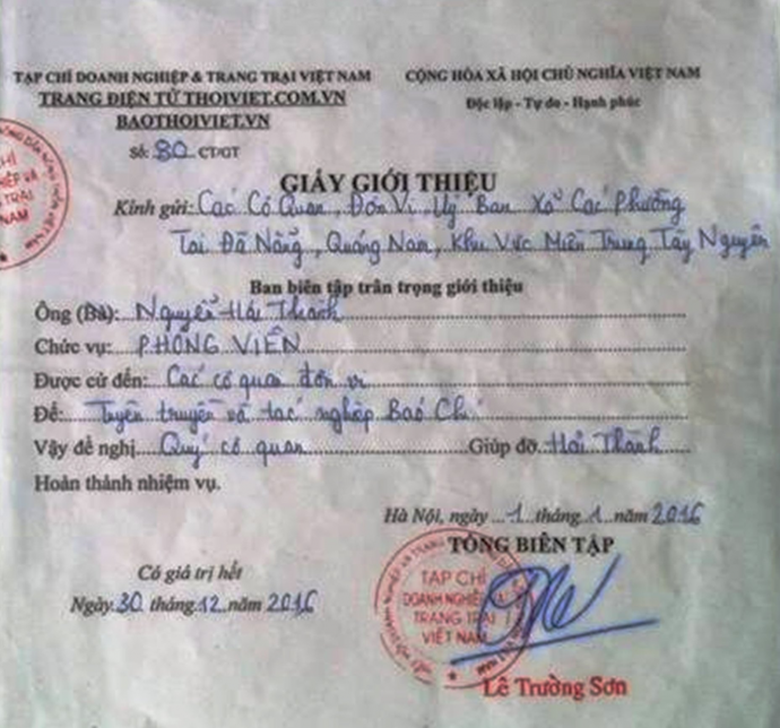 TẠP CHÍ DOANH NGHIỆP & TRANG TRẠI VIỆT NAM
TRANG ĐIỆN TỬ THOIVIET.COM.VN
BAOTHOIVIET.VN
Số: 80 CT/GT
CỘNG HÒA XÃ HỘI CHỦ NGHĨA VIỆT NAM
Độc lập - Tự do - Hạnh phúc
GIẤY GIỚI THIỆU
Kính gửi: Các Cơ Quan, Đơn Vị, Uỷ Ban Xã Các Phường
Tại Đà Nẵng, Quảng Nam, Khu Vực Miền Trung Tây Nguyên
Ban biên tập trân trọng giới thiệu
Ông (Bà): Nguyễn Hải Thành
Chức vụ: PHÓNG VIÊN
Được cử đến: Các cơ quan đơn vị
Để: Tuyên truyền và tác nghiệp Báo Chí
Vậy đề nghị Quý cơ quan Giúp đỡ Hải Thành
Hoàn thành nhiệm vụ.
Hà Nội, ngày 1 tháng 1 năm 2016
TỔNG BIÊN TẬP
Có giá trị hết
Ngày 30 tháng 12 năm 2016
TẠP CHÍ
DOANH NGHIỆP VÀ
TRANG TRẠI
VIỆT NAM
Lê Trường Sơn